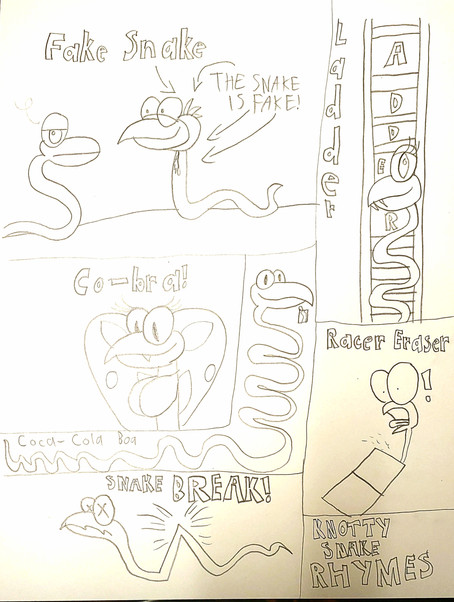 Fake Snake
THE SNAKE
IS FAKE!
Ladder
ADDER
Co-bra!
Coca-Cola Boa
Racer Eraser
!
SNAKE BREAK!
KNOTTY
SNAKE
RHYMES